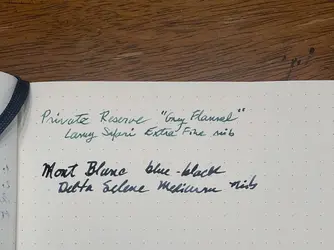 Private Reserve "Grey Flannel"
Lamy Safari Extra Fine nib
Mont Blanc blue-black
Delta Selene Medium nib